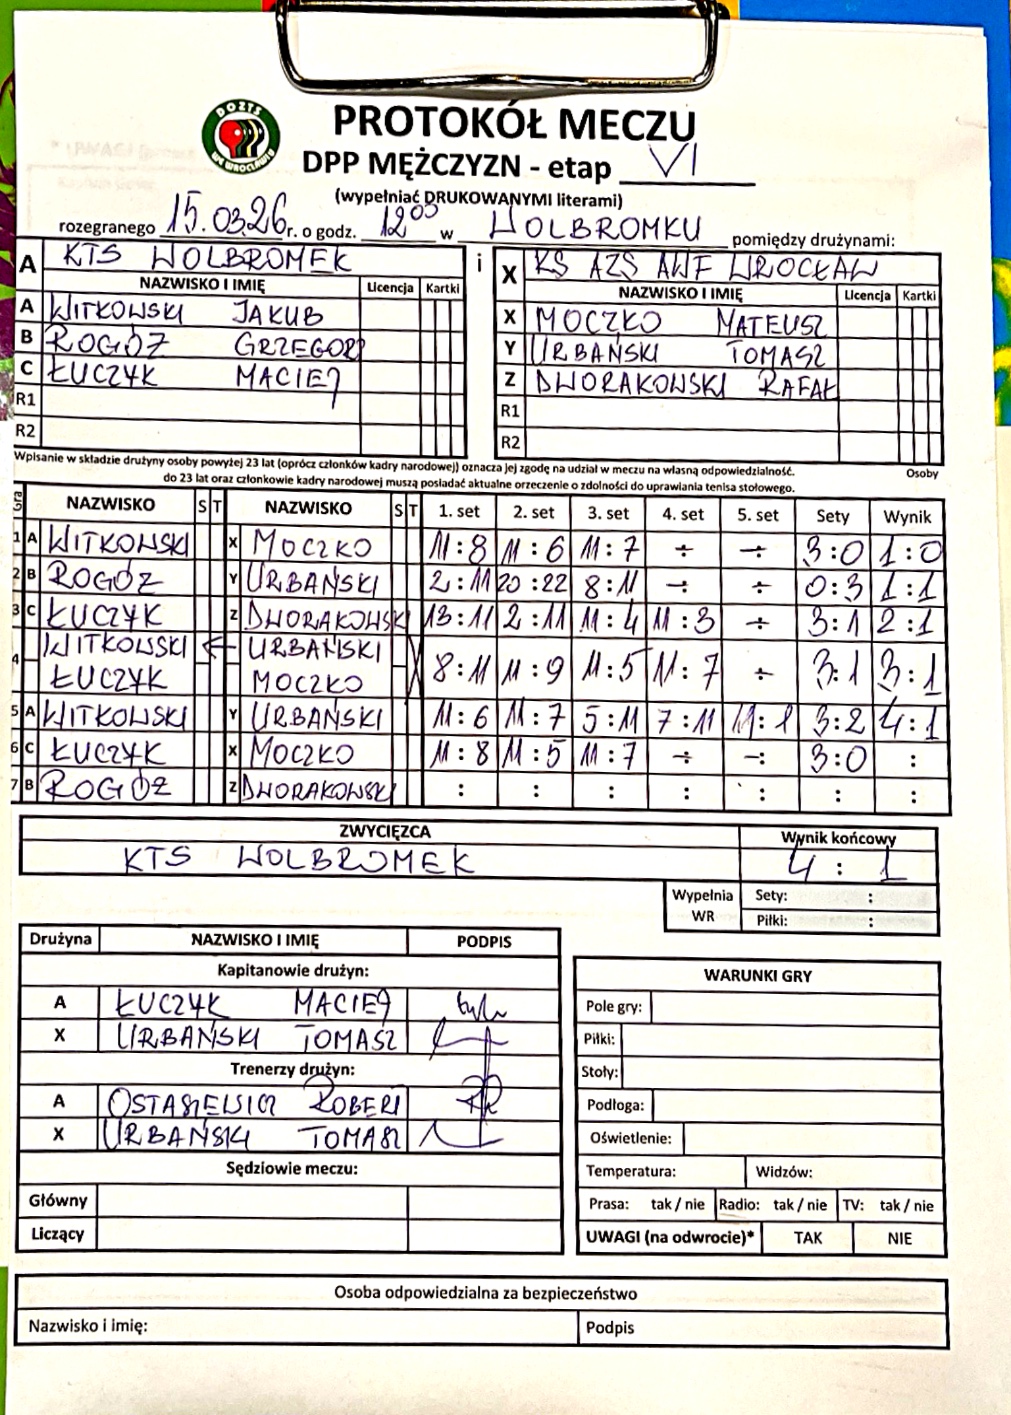 DOZTS
WE WROCŁAWIU
PROTOKÓŁ MECZU
DPP MĘŻCZYZN - etap VI
(wypełniać DRUKOWANYMI literami)
rozegranego 15.03.26 r. o godz. 12 05 w WOLBROMKU pomiędzy drużynami:
A KTS WOLBROMEK i X KS AZS AWF WROCŁAW
NAZWISKO I IMIĘ Licencja Kartki NAZWISKO I IMIĘ Licencja Kartki
A WITKOWSKI JAKUB X MOCZKO MATEUSZ
B ROGÓZ GRZEGORZ Y URBAŃSKI TOMASZ
C ŁUCZYK MACIEJ Z DWORAKOWSKI RAFAŁ
R1 R1
R2 R2
Wpisanie w składzie drużyny osoby powyżej 23 lat (oprócz członków kadry narodowej) oznacza jej zgodę na udział w meczu na własną odpowiedzialność. Osoby
do 23 lat oraz członkowie kadry narodowej muszą posiadać aktualne orzeczenie o zdolności do uprawiania tenisa stołowego.
Gra NAZWISKO S T NAZWISKO S T 1. set 2. set 3. set 4. set 5. set Sety Wynik
1 A WITKOWSKI X MOCZKO 11:8 11:6 11:7 ÷ ÷ 3:0 1:0
2 B ROGÓZ Y URBAŃSKI 2:11 20:22 8:11 ÷ ÷ 0:3 1:1
3 C ŁUCZYK Z DWORAKOWSKI 13:11 2:11 11:4 11:3 ÷ 3:1 2:1
4 WITKOWSKI URBAŃSKI 8:11 11:9 11:5 11:7 ÷ 3:1 3:1
ŁUCZYK MOCZKO
5 A WITKOWSKI Y URBAŃSKI 11:6 11:7 5:11 7:11 11:8 3:2 4:1
6 C ŁUCZYK X MOCZKO 11:8 11:5 11:7 ÷ ÷ 3:0 :
7 B ROGÓZ Z DWORAKOWSKI : : : : : : :
ZWYCIĘZCA Wynik końcowy
KTS WOLBROMEK 4 : 1
Wypełnia WR Sety: :
Piłki: :
Drużyna NAZWISKO I IMIĘ PODPIS
Kapitanowie drużyn:
A ŁUCZYK MACIEJ
X URBAŃSKI TOMASZ
Trenerzy drużyn:
A OSTASZEWICZ ROBERT
X URBAŃSKI TOMASZ
Sędziowie meczu:
Główny
Liczący
WARUNKI GRY
Pole gry:
Piłki:
Stoły:
Podłoga:
Oświetlenie:
Temperatura: Widzów:
Prasa: tak / nie Radio: tak / nie TV: tak / nie
UWAGI (na odwrocie)* TAK NIE
Osoba odpowiedzialna za bezpieczeństwo
Nazwisko i imię: Podpis